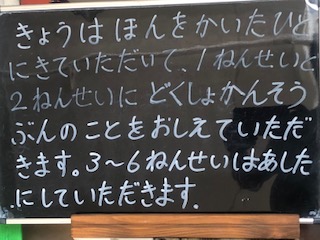 きょうは ほんをかいたひと
にきていただいて、1ねんせいと
2ねんせいに どくしょかんそう
ぶんのことをおしえていただ
きます。3～6ねんせいはあした
にしていただきます.